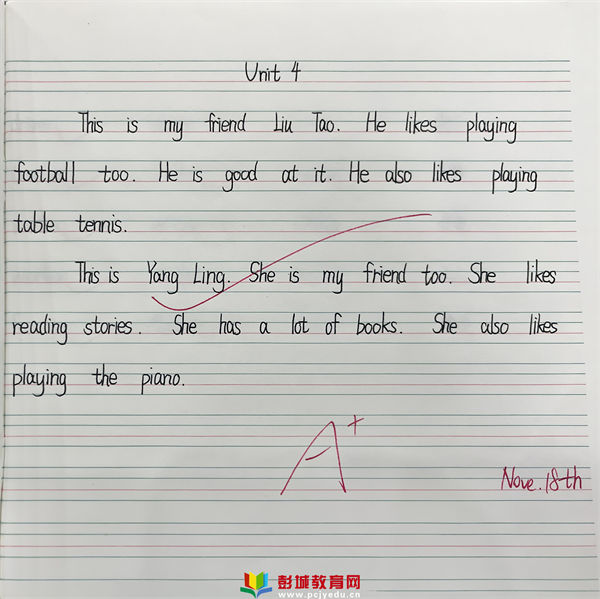 Unit 4
This is my friend Liu Tao. He likes playing
football too. He is good at it. He also likes playing
table tennis.
This is Yang Ling. She is my friend too. She likes
reading stories. She has a lot of books. She also likes
playing the piano.
A+
Nove. 18th
彭城教育网
www.pcjyedu.cn